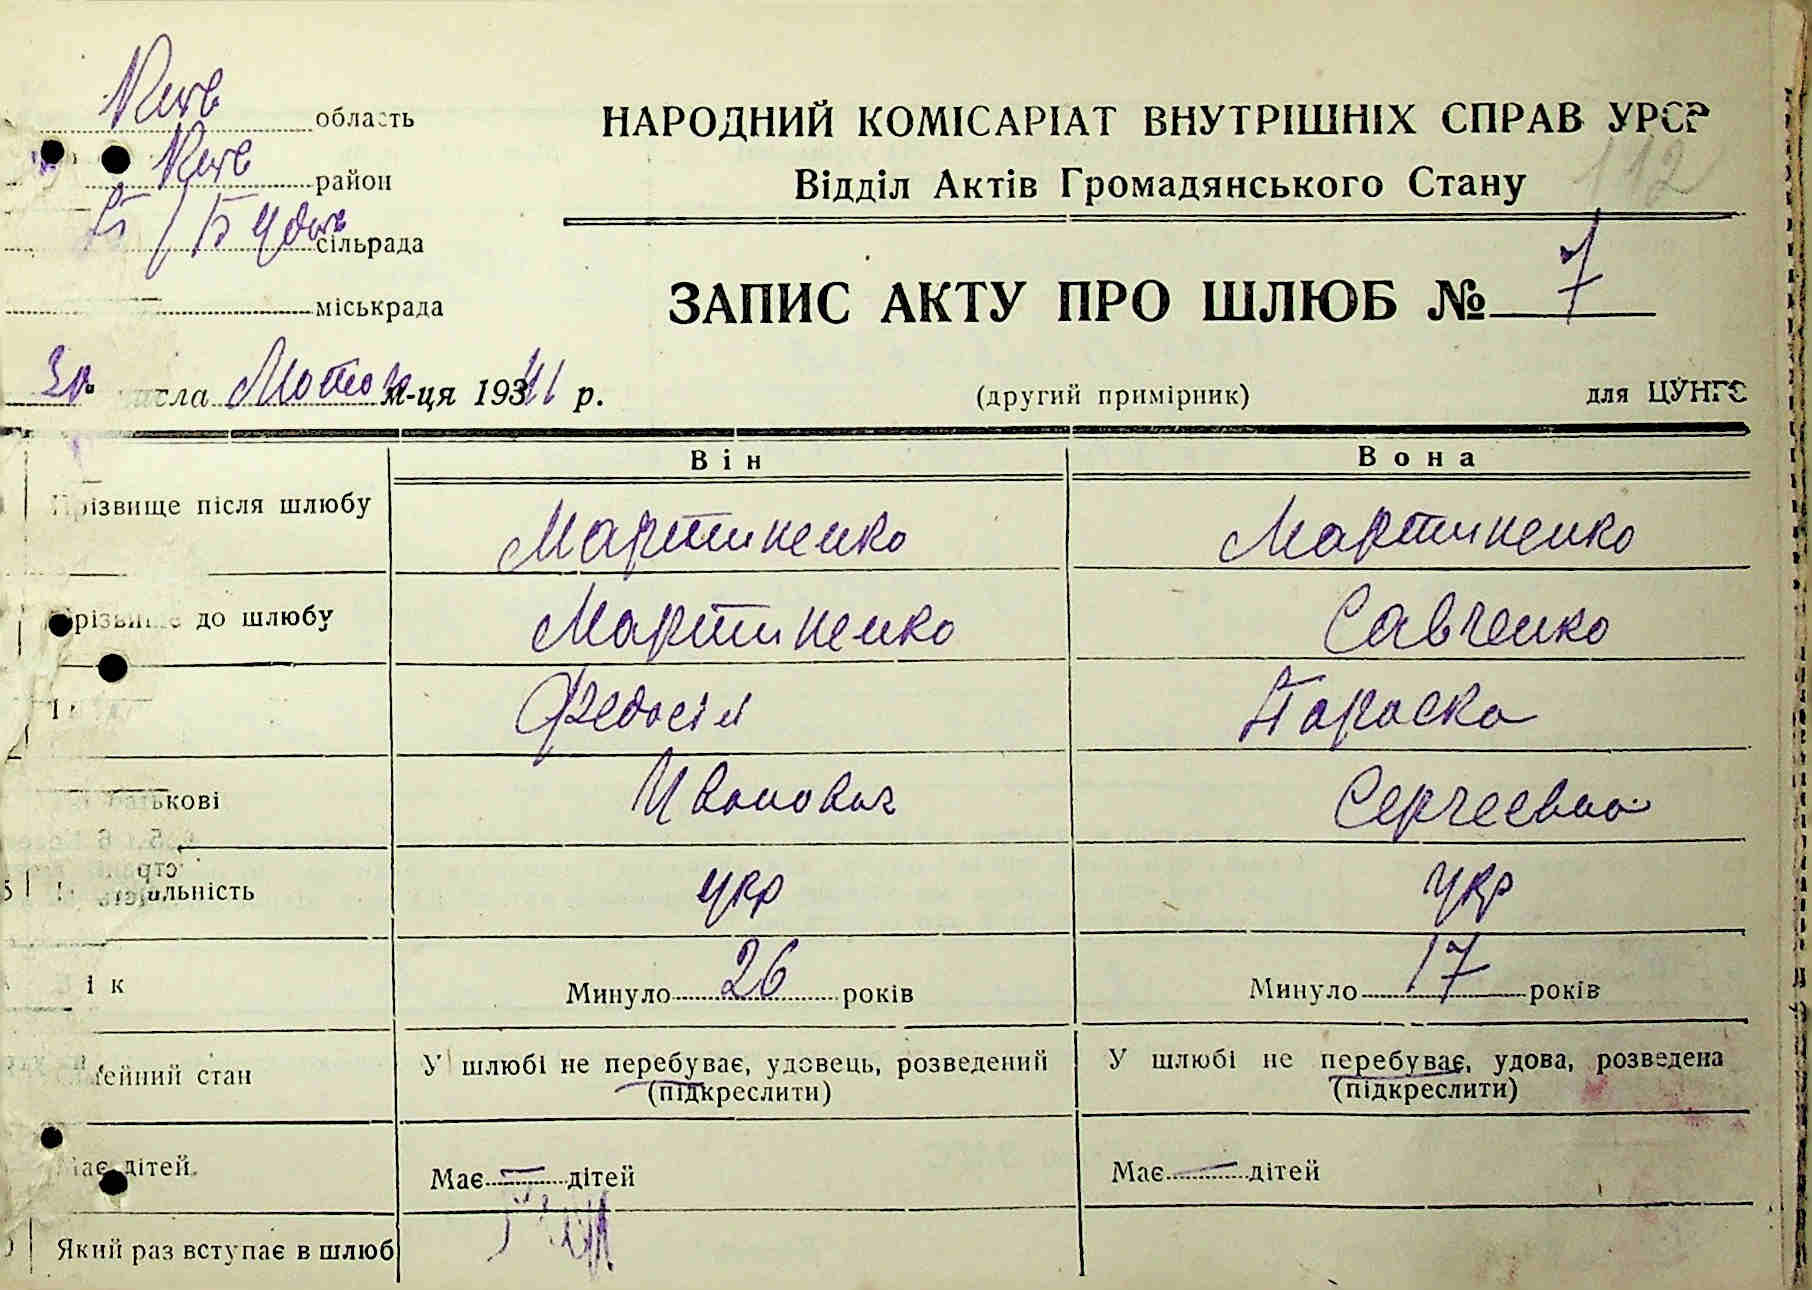 Київ область
Київ район
П/Б Удаїв сільрада
міськрада
НАРОДНИЙ КОМІСАРІАТ ВНУТРІШНІХ СПРАВ УРСР
112
Відділ Актів Громадянського Стану
ЗАПИС АКТУ ПРО ШЛЮБ № 7
30 числа Лютого м-ця 1941 р.
(другий примірник)
для ЦУНГО
Він
Вона
Прізвище після шлюбу
Мартиненко
Мартиненко
Прізвище до шлюбу
Мартиненко
Савченко
Федосій
Параска
батькові
Иванович
Сергеевна
5 Національність
укр
укр
Вік
Минуло 26 років
Минуло 17 років
Сімейний стан
У шлюбі не перебуває, удовець, розведений
(підкреслити)
У шлюбі не перебуває, удова, розведена
(підкреслити)
Має дітей
Має — дітей
Має — дітей
Який раз вступає в шлюб